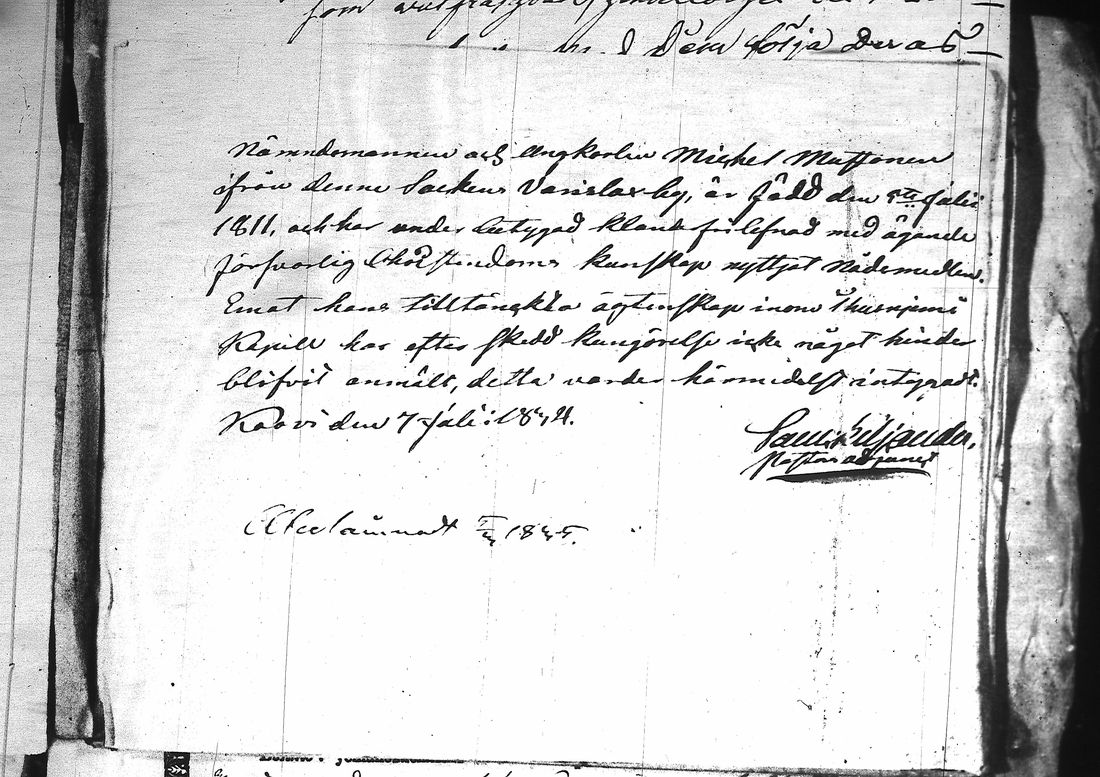 dem följa deras
Nämndemannen och Ungkarlen Michel Mattonen
ifrån denne Sockens Varislax by, är född den 5te Julii
1811, och har under betygad klanderfri lefnad med ägande
försvarlig Christendoms kunskap nyttjat Nådemedlen.
Emot hans tilltänckta ägtenskap inom Thusniemi
Kapell har efter skedd kungörelse icke något hinder
blifvit anmält, detta varder härmedelst intygadt.
Kaavi den 7 Julii 1844.
Saml. Ciljander.
Pastors adjunct
Afl. 1845.